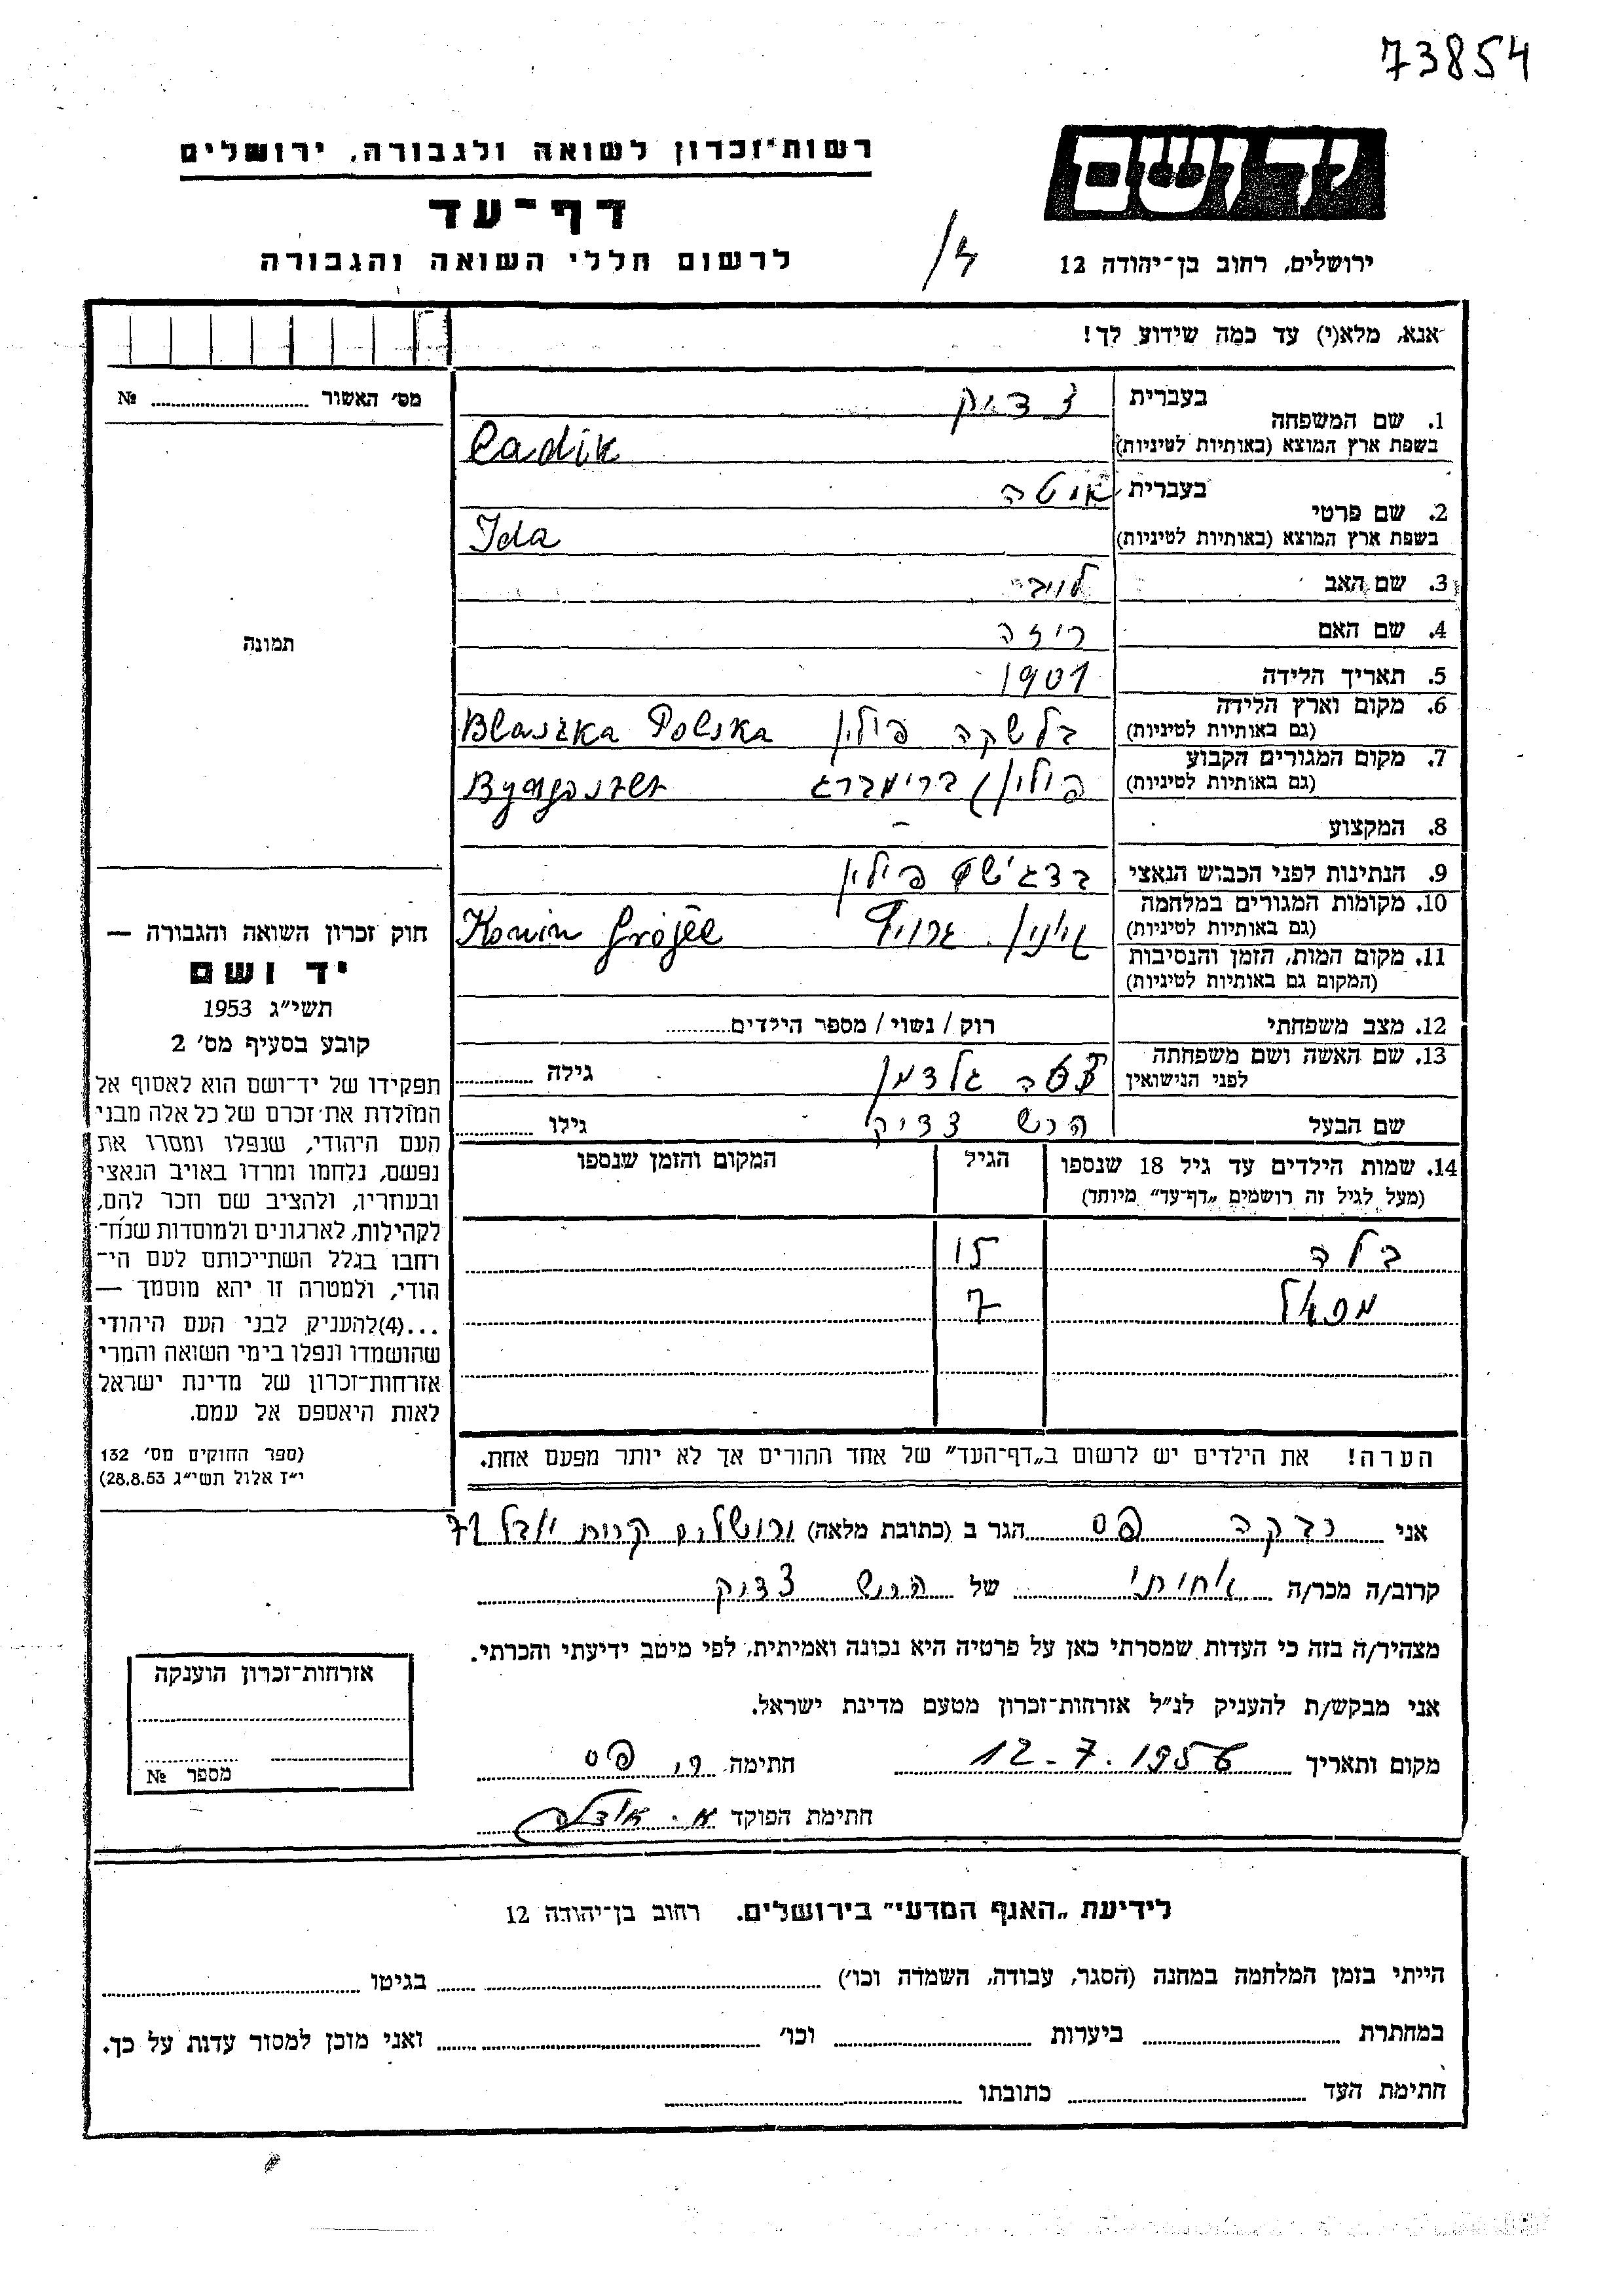 73854
יד ושם
ירושלים, רחוב בן־יהודה 12
רשות־זכרון לשואה ולגבורה, ירושלים
דף־עד
לרשום חללי השואה והגבורה
אנא, מלא(י) עד כמה שידוע לך!
מס׳ האשור № 
1. שם המשפחה בעברית צדיק
בשפת ארץ המוצא (באותיות לטיניות) Cadik
2. שם פרטי בעברית איטה
בשפת ארץ המוצא (באותיות לטיניות) Ida
3. שם האב לויבי
4. שם האם ריזה
5. תאריך הלידה 1901
6. מקום וארץ הלידה
(גם באותיות לטיניות) בלשקה פולין Blaszka Polska
7. מקום המגורים הקבוע
(גם באותיות לטיניות) פולין
8. המקצוע –
9. הנתינות לפני הכבוש הנאצי פולין
10. מקומות המגורים במלחמה
(גם באותיות לטיניות) Konin
11. מקום המות, הזמן והנסיבות
(המקום גם באותיות לטיניות)
12. מצב משפחתי רוק / נשוי / מספר הילדים
13. שם האשה ושם משפחתה
לפני הנישואין גלדמן גילה
שם הבעל הרש צדיק גילו
14. שמות הילדים עד גיל 18 שנספו
(מעל לגיל זה רושמים „דף־עד” מיוחד)
הגיל
המקום והזמן שנספו
בלה 15
7
הערה! את הילדים יש לרשום ב„דף־העד” של אחד ההורים אך לא יותר מפעם אחת.
תמונה
חוק זכרון השואה והגבורה —
יד ושם
תשי״ג 1953
קובע בסעיף מס׳ 2
תפקידו של יד־ושם הוא לאסוף אל
המולדת את זכרם של כל אלה מבני
העם היהודי, שנפלו ומסרו את
נפשם, נלחמו ומרדו באויב הנאצי
ובעוזריו, ולהציב שם וזכר להם,
לקהילות, לארגונים ולמוסדות שנח־
רבו בגלל השתייכותם לעם הי־
הודי, ולמטרה זו יהא מוסמך —
...(4)להעניק לבני העם היהודי
שהושמדו ונפלו בימי השואה והמרי
אזרחות־זכרון של מדינת ישראל
לאות היאספם אל עמם.
(ספר החוקים מס׳ 132
י״ז אלול תשי״ג 28.8.53)
אני רבקה פס הגר ב (כתובת מלאה) ירושלים קרית יובל 71
קרוב/ה מכר/ה אחותי של הרש צדיק
מצהיר/ה בזה כי העדות שמסרתי כאן על פרטיה היא נכונה ואמיתית, לפי מיטב ידיעתי והכרתי.
אני מבקש/ת להעניק לנ״ל אזרחות־זכרון מטעם מדינת ישראל.
מקום ותאריך 12-7.1956 חתימה ר. פס
חתימת הפוקד
אזרחות־זכרון הוענקה
מספר №
לידיעת „האגף המדעי” בירושלים. רחוב בן־יהודה 12
הייתי בזמן המלחמה במחנה (הסגר, עבודה, השמדה וכו׳) בגיטו
במחתרת ביערות וכו׳ ואני מוכן למסור עדות על כך.
חתימת העד כתובתו